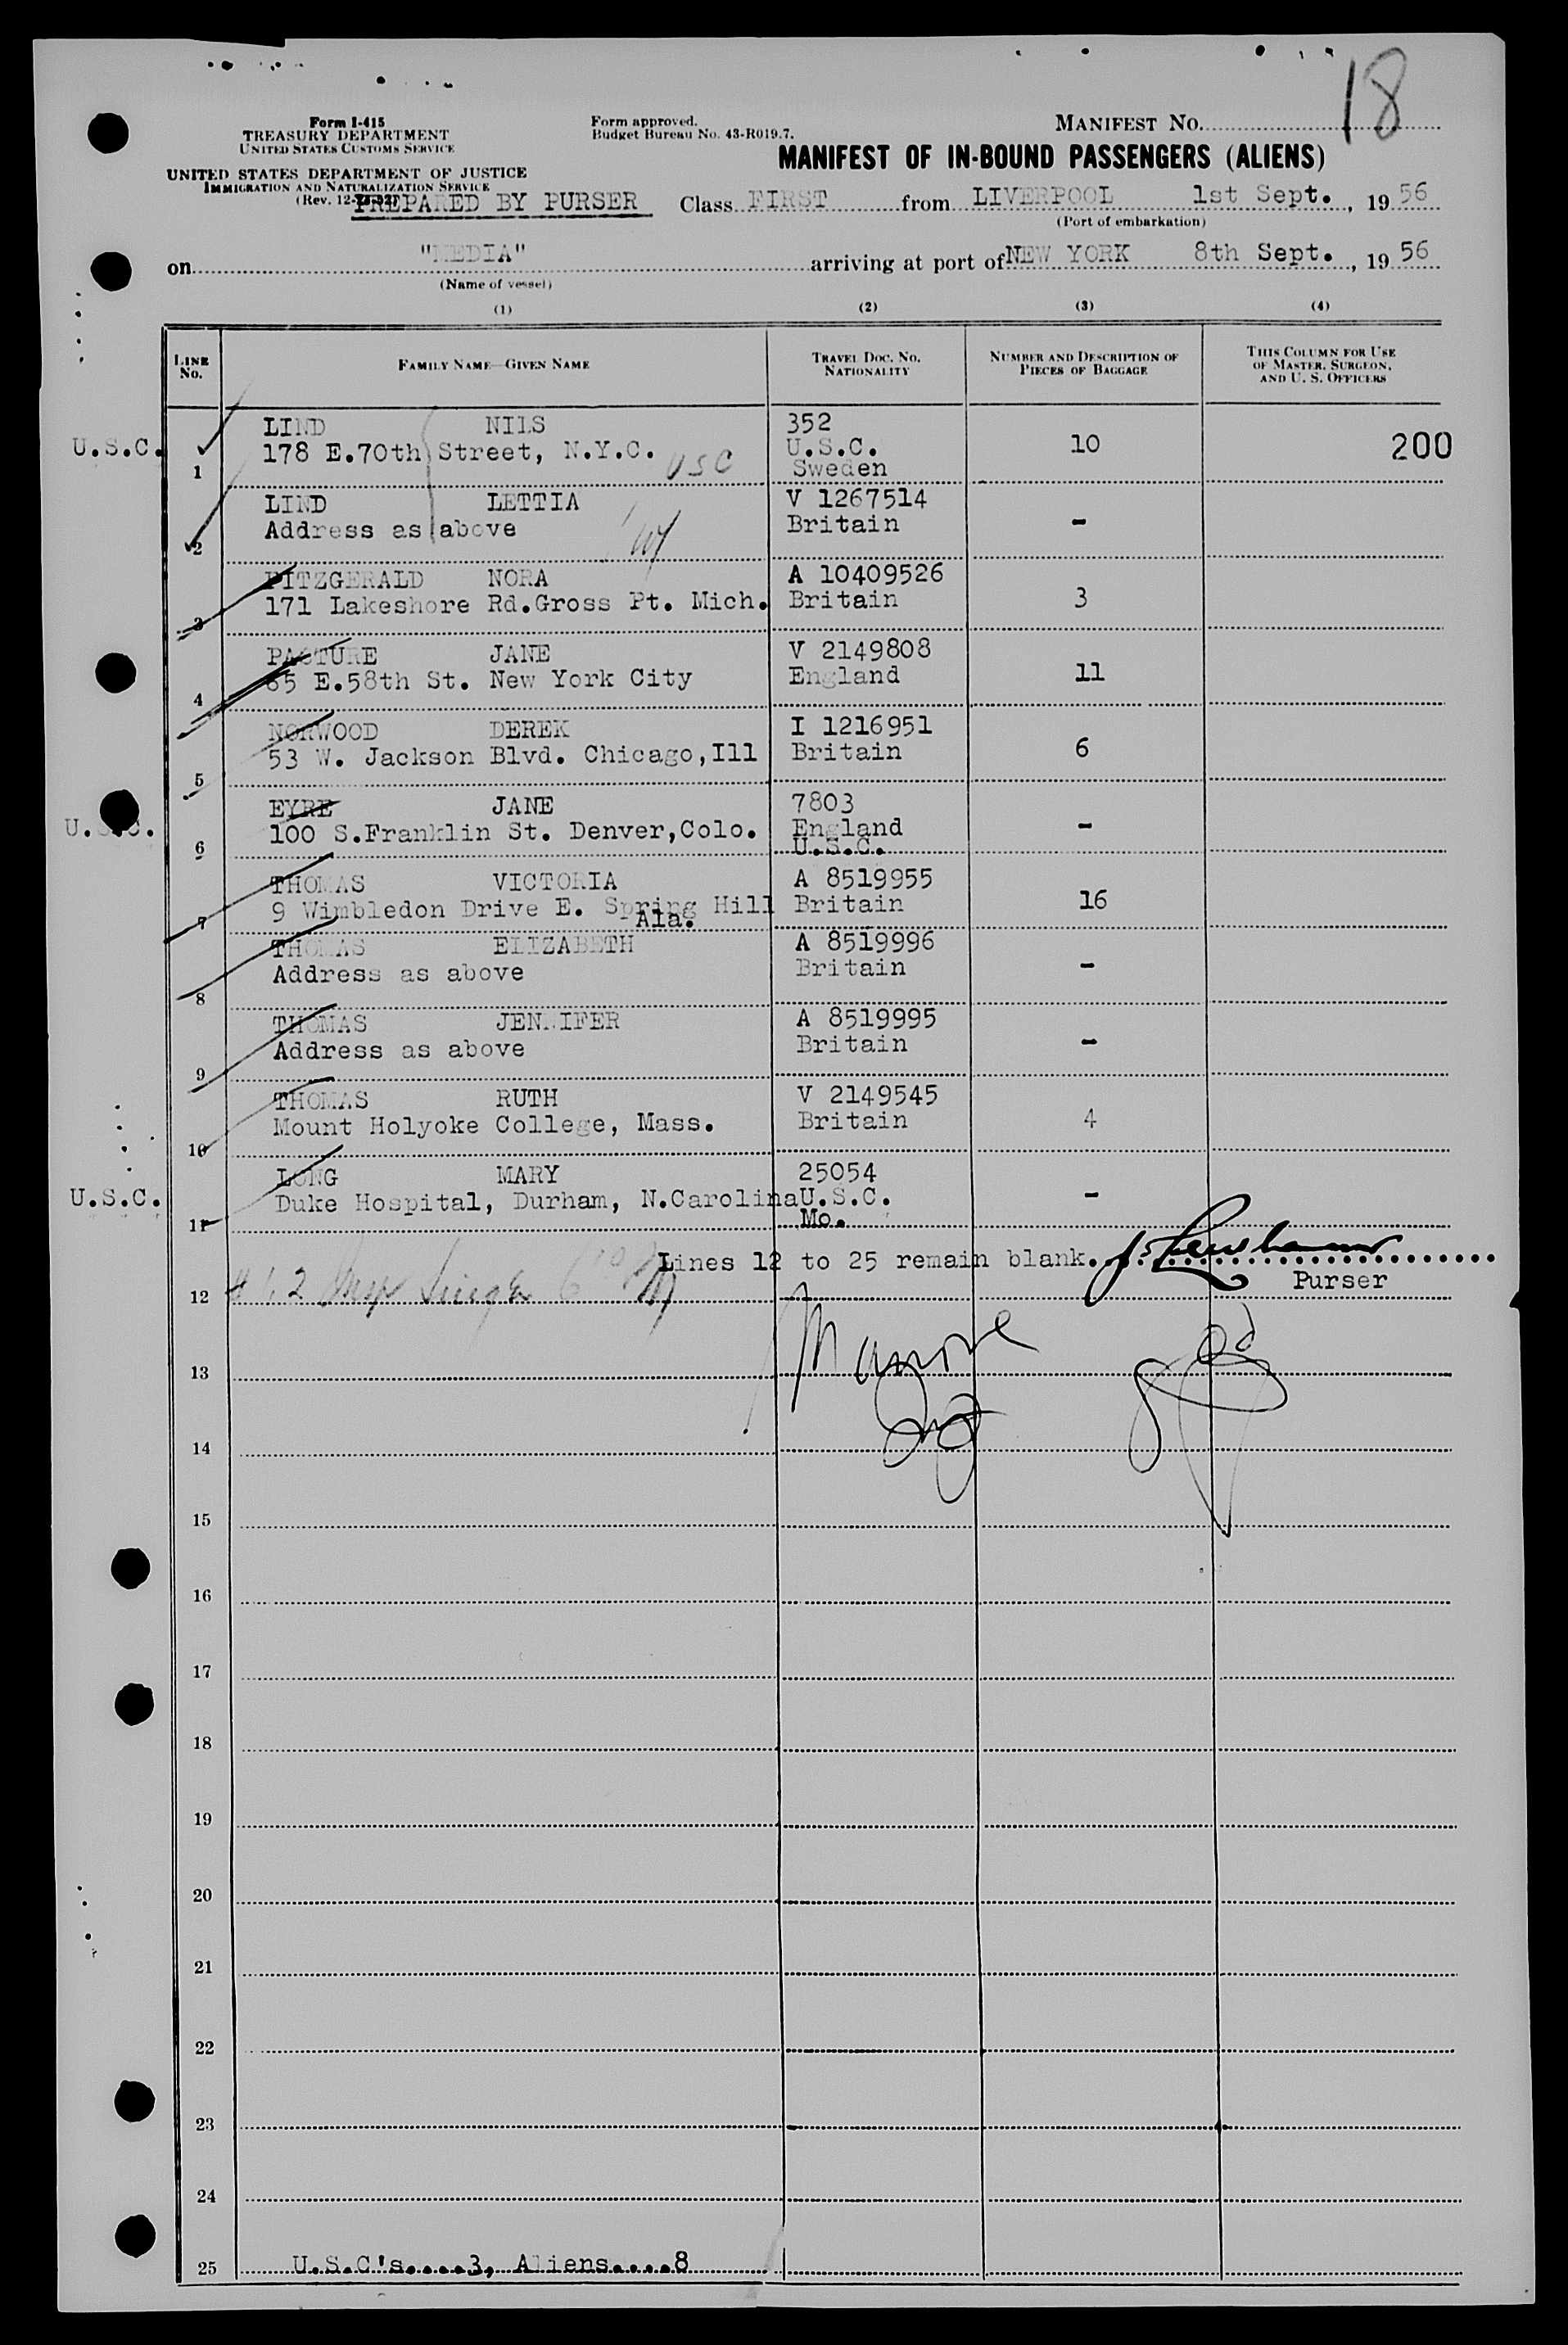 18
Form I-415
TREASURY DEPARTMENT
UNITED STATES CUSTOMS SERVICE
Form approved.
Budget Bureau No. 43-R019.7.
MANIFEST NO.
MANIFEST OF IN-BOUND PASSENGERS (ALIENS)
UNITED STATES DEPARTMENT OF JUSTICE
IMMIGRATION AND NATURALIZATION SERVICE
(Rev. 12-23-52)
PREPARED BY PURSER Class FIRST from LIVERPOOL 1st Sept., 1956
(Port of embarkation)
on "MEDIA" arriving at port of NEW YORK 8th Sept., 1956
(Name of vessel)
(1) (2) (3) (4)
LINE No. FAMILY NAME—GIVEN NAME TRAVEL DOC. NO. NATIONALITY NUMBER AND DESCRIPTION OF PIECES OF BAGGAGE THIS COLUMN FOR USE OF MASTER, SURGEON, AND U. S. OFFICERS
LIND NILS 352
U.S.C. 1 178 E.70th Street, N.Y.C. USC U.S.C. 10 200
Sweden
LIND LETTIA V 1267514
2 Address as above Britain -
FITZGERALD NORA A 10409526
3 171 Lakeshore Rd.Gross Pt. Mich. Britain 3
PACTURE JANE V 2149808
4 65 E.58th St. New York City England 11
NORWOOD DEREK I 1216951
5 53 W. Jackson Blvd. Chicago,Ill Britain 6
EYRE JANE 7803
U.S.C. 6 100 S.Franklin St. Denver,Colo. England -
U.S.C.
THOMAS VICTORIA A 8519955
7 9 Wimbledon Drive E. Spring Hill Britain 16
Ala.
THOMAS ELIZABETH A 8519996
8 Address as above Britain -
THOMAS JENNIFER A 8519995
9 Address as above Britain -
THOMAS RUTH V 2149545
10 Mount Holyoke College, Mass. Britain 4
LONG MARY 25054
U.S.C. 11 Duke Hospital, Durham, N.Carolina U.S.C. -
Mo.
Lines 12 to 25 remain blank.
Purser
12
13
14
15
16
17
18
19
20
21
22
23
24
25 U.S.C's....3, Aliens....8